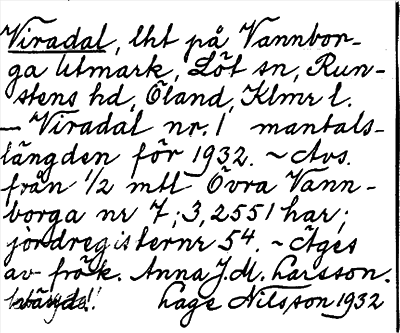 Viradal, lht på Vannbor-
ga utmark, Löt sn, Run-
stens hd, Öland, Klmr l.
— Viradal nr. 1 mantals-
längden för 1932. ~ Avs.
från 1/2 mtl Övra Vann-
borga nr 7; 3,2551 har;
jordregisternr 54. ~ Äges
av frök. Anna J. M. Larsson.
Lage Nilsson 1932